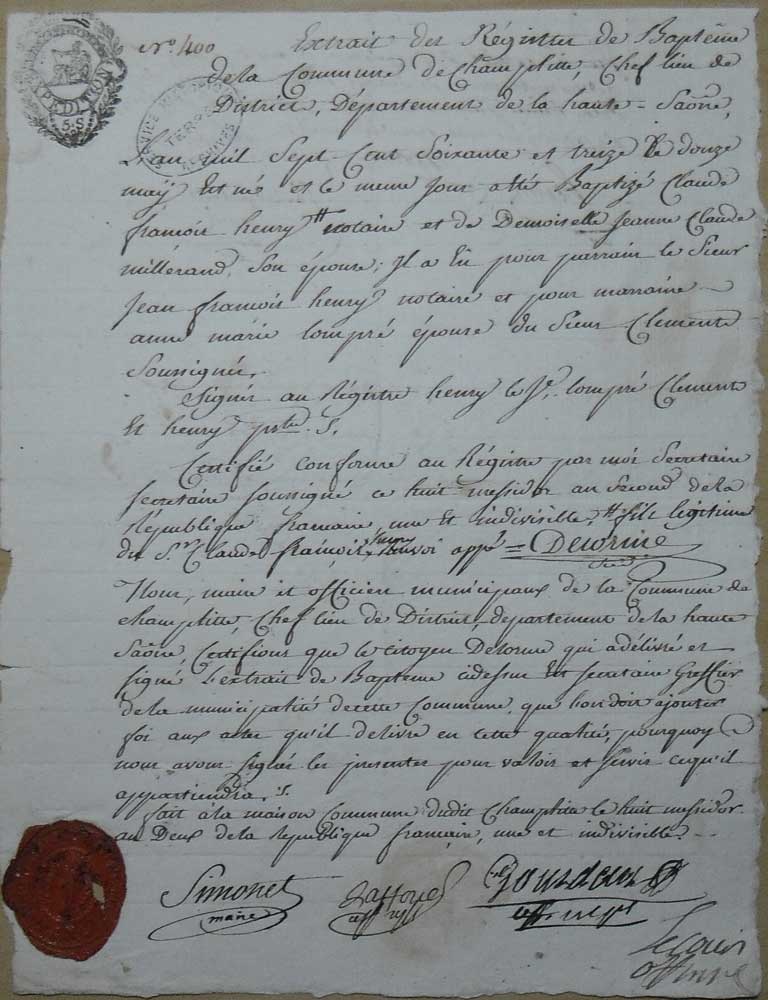 EXPEDITION
5. S
SERVICE HISTORIQUE
TERRE
ARCHIVES
N.º 400
Extrait des Régistres de Baptême
de la Commune de Champlitte, Chef lieu de
District, Département de la haute Saône,
L'an mil Sept Cent Soixante et treize le douze
maÿ Est né et le meme jour a été Baptizé Claude
francois henry # notaire et de Demoiselle Jeanne Claude
millerand, Son épouse; Il a Eu pour parrain le Sieur
Jean francois henry notaire et pour marraine
anne marie Compré épouse du Sieur Clement
Soussignés.
Signés au Régistre henry le Je. Compré Clement
Et henry ptre. S.
Certifié conforme au Régistre par moi Secretaire
secretaire soussigné ce huit messidor an Second de la
République francaise une Et indivisible, # fils légitime
du S.r Claude françois, renvoi appé = Delorme
Nous, maire et officiers municipaux de la Commune de
champlitte, Chef lieu de District, departement de la haute
Saône, Certifions que le citoyen Delorme qui a délivré et
signé L'extrait de Baptême cidessus Est secretaire Greffier
de la municipalité de cette Commune, que l'on doit ajouter
foi aux actes qu'il delivre en cette qualité, pourquoy
nous avons Signés les presentes pour valoir et Servir ce qu'il
appartiendra. S.
fait à la maison Commune dudit Champlitte le huit messidor
an Deux de la République française, une et indivisible.
Simonet
maire